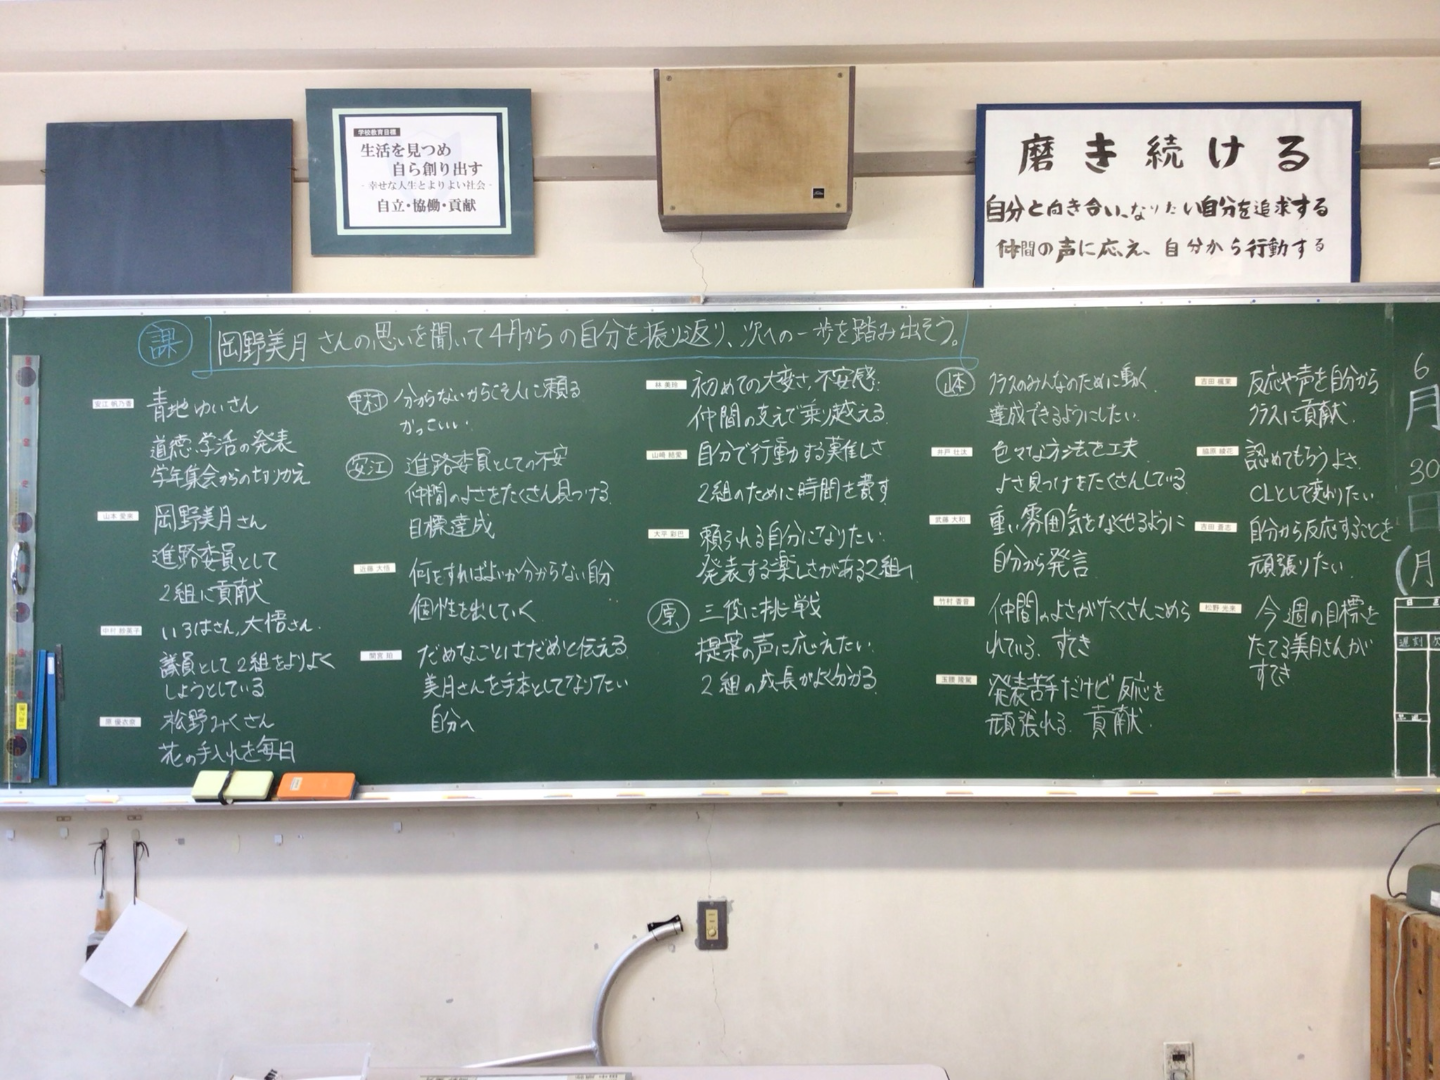 学校教育目標
生活を見つめ
自ら創り出す
- 幸せな人生とよりよい社会 -
自立・協働・貢献
磨き続ける
自分と向き合い、なりたい自分を追求する
仲間の声に応え、自分から行動する
課
岡野美月さんの思いを聞いて4月からの自分を振り返り、次への一歩を踏み出そう。
安江 帆乃香
青地ゆいさん
道徳・学活の発表
学年集会からのきりかえ
山本 愛奈
岡野美月さん
進路委員として
2組に貢献
いろはさん、大悟さん
議員として2組をよりよく
しようとしている
松野みくさん
花の手入れを毎日
中村
分からないからこそ人に頼る
かっこいい
安江
進路委員としての不安
仲間のよさをたくさん見つける
目標達成
近藤 大悟
何をすればよいか分からない自分
個性を出していく
だめなことはだめと伝える
美月さんを手本としてなりたい
自分へ
林 美玲
初めての大変さ、不安感
仲間の支えで乗り越える
山崎 結愛
自分で行動する難しさ
2組のために時間を費す
大平 彩巴
頼られる自分になりたい
発表する楽しさがある2組へ
原
三役に挑戦
提案の声に応えたい
2組の成長がよく分かる
山本
クラスのみんなのために動く
達成できるようにしたい
井戸 仕汰
色々な方法で工夫
よさ見つけをたくさんしている
武藤 大和
重い雰囲気をなくせるように
自分から発言
竹村 香音
仲間のよさがたくさんこめら
れている すてき
発表苦手だけど反応を
頑張れる 貢献
吉田 楓果
反応や声を自分から
クラスに貢献
認めてもらうよさ
CLとして変わりたい
吉田 蒼志
自分から反応することを
頑張りたい
松野 光来
今週の目標を
たてる美月さんが
すてき
6
月
30
日
(月
遅刻
早退